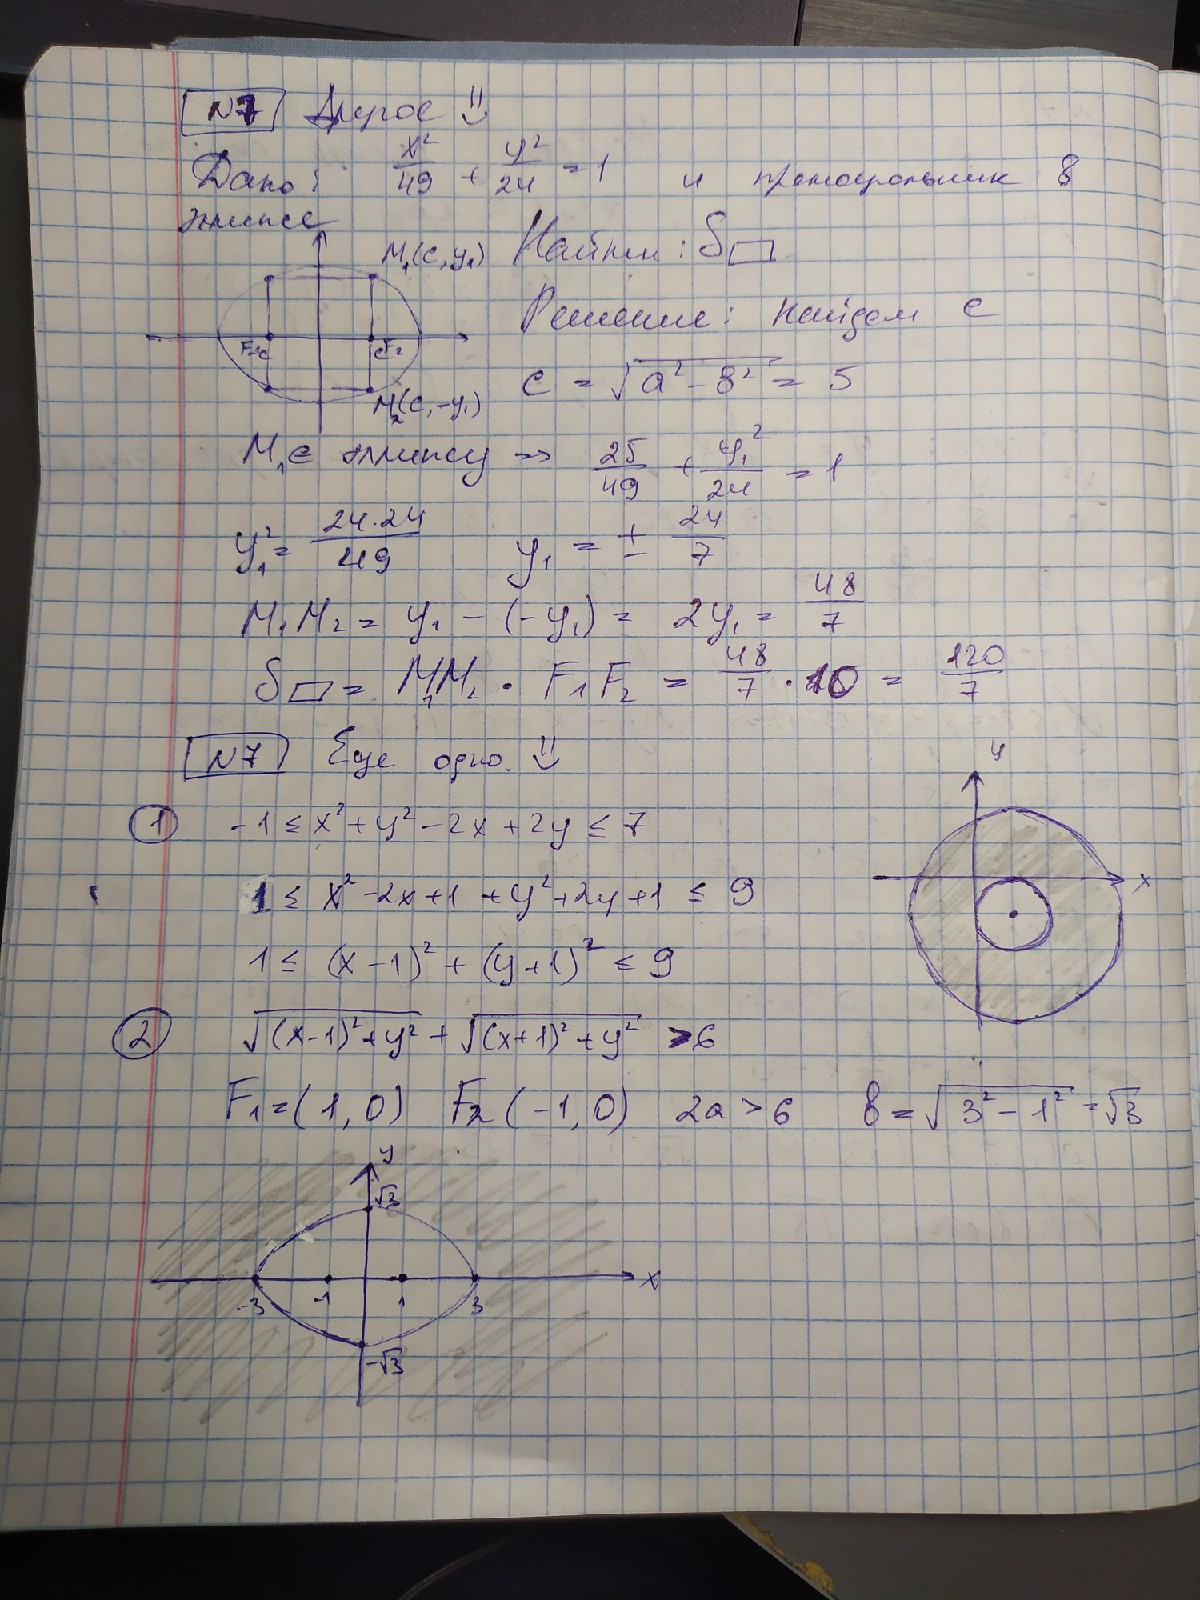 N7 Другое
Дано: x²/49 + y²/24 = 1 и прямоугольник в
эллипсе
M₁(c, y₁) Найти: S▭
F₁-c cF₂ Решение: найдем c
M₂(c, -y₁) c = √(a² - в²) = 5
M₁ ∈ эллипсу => 25/49 + y₁²/24 = 1
y₁² = 24·24/49 y₁ = ± 24/7
M₁M₂ = y₁ - (-y₁) = 2y₁ = 48/7
S▭ = M₁M₂ · F₁F₂ = 48/7 · 10 = 120/7
N7 Еще одно.
y
x
① -1 ≤ x² + y² - 2x + 2y ≤ 7
1 ≤ x² - 2x + 1 + y² + 2y + 1 ≤ 9
1 ≤ (x - 1)² + (y + 1)² ≤ 9
② √((x-1)² + y²) + √((x+1)² + y²) > 6
F₁ = (1, 0) F₂ (-1, 0) 2a > 6 в = √(3² - 1²) = √3
y
√3
-3 -1 1 3 x
-√3